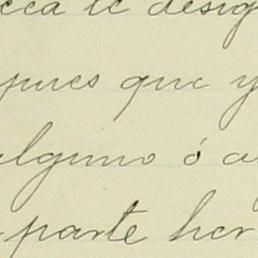 le desig
pues que y
alguno ó a
parte her